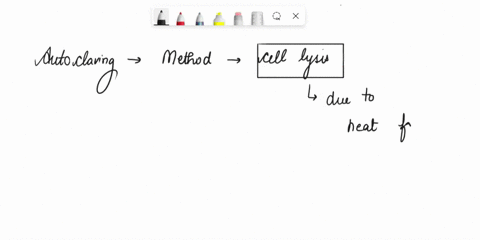 Autoclaving → Method → cell lysis
↳ due to
heat f